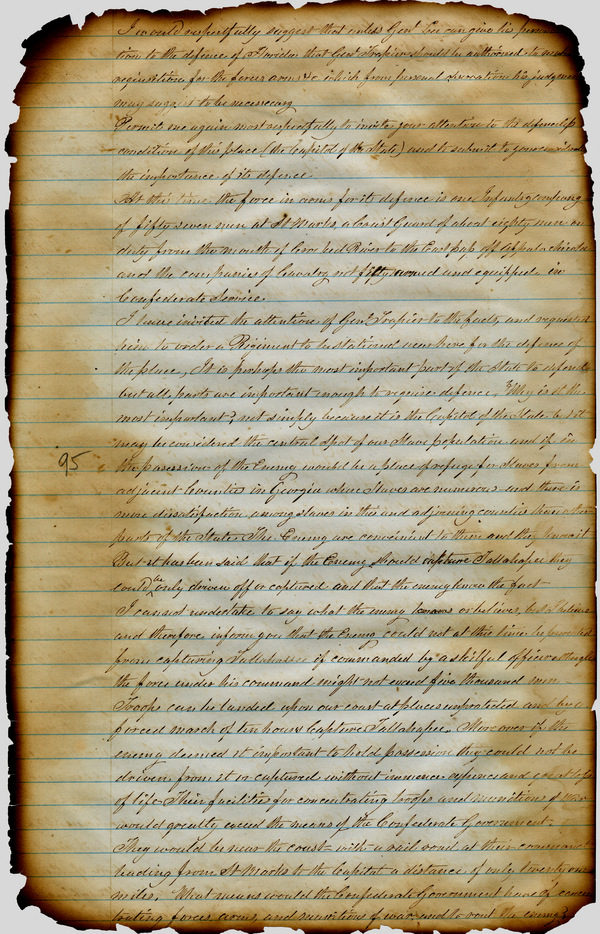 I would respectfully suggest that unless Genl Lee can give his personal
tion to the defence of Florida that Genl Trapier should be authorised to make
requisition for the forces arms &c which from personal observation his judgment
may suggest to be necessary
Permit me again most respectfully to invite your attention to the defenceless
condition of this place (the Capitol of the State) and to submit to your
the importance of its defence.
At this time the force in arms for its defence is one Infantry company
of fifty seven men at St Marks, a Coast Guard of about eighty men on
duty from the mouth of Crooked River to the East pass off Appalachicola
and the companies of Cavalry not fifty armed and equipped in
Confederate Service.
I have invited the attention of Genl Trapier to the facts, and requested
him to order a Regiment to be stationed near here for the defence of
the place, It is perhaps the most important part of the State to defend
but all parts are important enough to require defence. Why is it the
most important? not simply because it is the Capitol of the State but it
may be considered the central spot of our Slave population and if in
95
the possession of the Enemy would be a place of refuge for slaves from
adjacent Counties in Georgia where Slaves are numerous and there is
more dissatisfaction among slaves in this and adjoining counties than other
parts of the State. The Enemy are convenient to them and they know it
But it has been said that if the Enemy should capture Tallahassee they
could be only driven off or captured and that the enemy knew the fact
I cannot undertake to say what the enemy knows or believes, but I believe
and therefore inform you that the Enemy could not at this time be prevented
from capturing Tallahassee if commanded by a skilful officer although
the force under his command might not exceed five thousand men
Troops can be landed upon our coast at places unprotected and by a
forced march of ten hours Capture Tallahassee. Moreover if the
enemy deemed it important to hold possession they could not be
driven from it or captured without immense expense and great loss
of life. Their facilities for concentrating troops and munitions of war
would greatly exceed the means of the Confederate Government.
They would be near the coast with a rail road at their command
leading from St Marks to the Capitol a distance of only twenty one
miles. What means would the Confederate Government have of concen
trating forces, arms, and munitions of war and to rout the enemy?